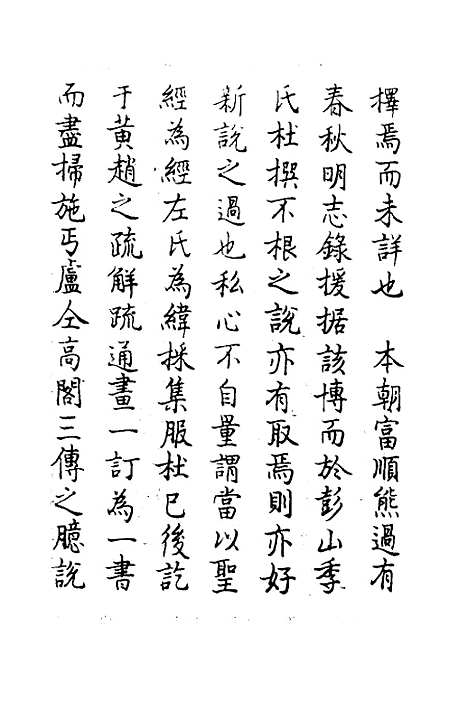 擇焉而未詳也　本朝富順熊過有
春秋明志錄援据該博而於彭山季
氏杜撰不根之說亦有取焉則亦好
新說之過也私心不自量謂當以聖
經為經左氏為緯採集服杜已後訖
于黃趙之疏解疏通畫一訂為一書
而盡掃施丐盧仝高閣三傳之臆說